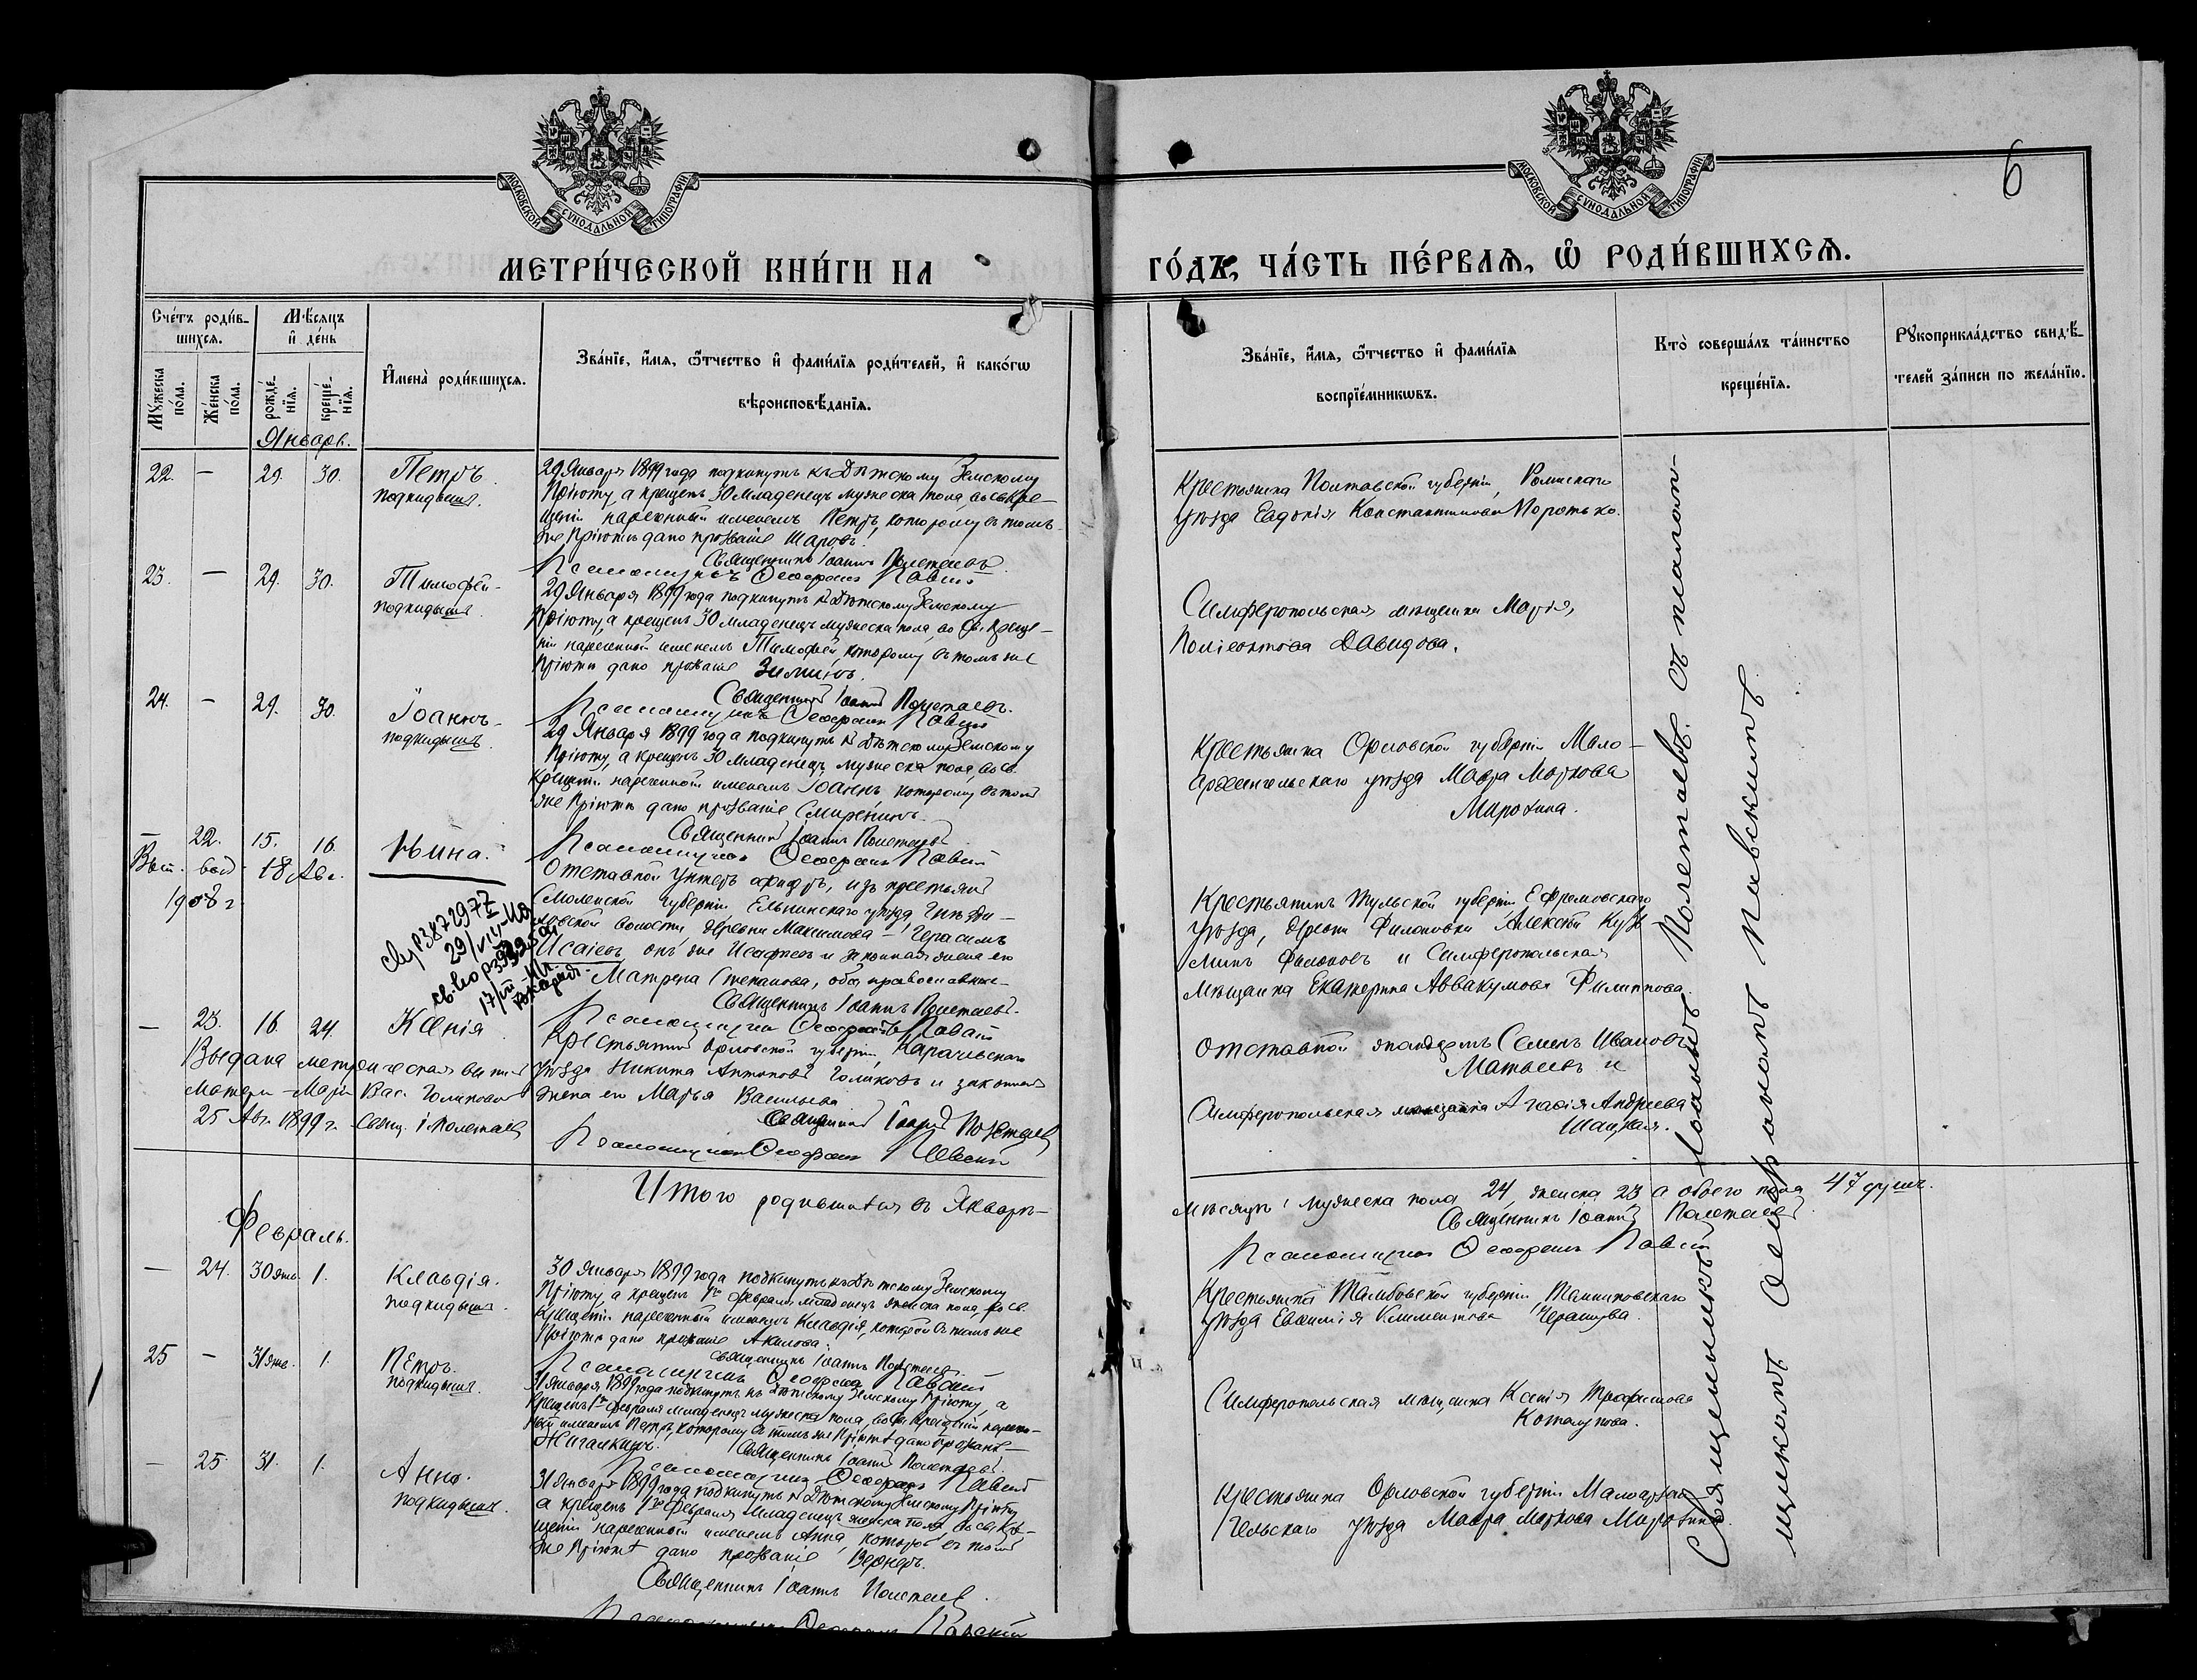 МОСКОВСКОЙ СѴНОДАЛЬНОЙ ТИПОГРАФІИ
МОСКОВСКОЙ СѴНОДАЛЬНОЙ ТИПОГРАФІИ
6
МЕТРИ́ЧЕСКОЙ КНИ́ГИ НА
ГО́ДЪ, ЧА́СТЬ ПЕ́РВАѦ, Ѡ҆ РОДИ́ВШИХСѦ.
Сче́тъ роди́в-
шихсѧ.
Мѣ́сѧцъ
и҆ де́нь
Му́жеска по́ла.
Же́нска по́ла.
рожде́-нїѧ.
креще́-нїѧ.
И҆мена̀ роди́вшихсѧ.
Зва́нїе, и҆́мѧ, ѻ҆́тчество и҆ фами́лїѧ роди́телей, и҆ како́гѡ
вѣроисповѣ́данїѧ.
Зва́нїе, и҆́мѧ, ѻ҆́тчество и҆ фами́лїѧ
воспрїе́мникѡвъ.
Кто̀ соверша́лъ та́инство
креще́нїѧ.
Рꙋкоприкла́дство свидѣ́-
телей за́писи по жела́нїю.
Январь.
22. — 29. 30. Петръ
подкидышъ.
29 Января 1899 года подкинутъ къ Дѣтскому Земскому
Пріюту, а крещенъ 30 младенецъ мужеска пола, во св. Кре-
щеніи нареченный именемъ Петръ, которому въ томъ-
же Пріютѣ дано прозваніе Шаровъ.
Священникъ Іоаннъ Полетаевъ.
Псаломщикъ Ѳеофанъ Павскій
Крестьянка Полтавской губерніи, Роменскаго
уѣзда Евдокія Константинова Коротько.
23. — 29. 30. Тимофей-
подкидышъ.
29 Января 1899 года подкинутъ къ Дѣтскому Земскому
Пріюту, а крещенъ 30 младенецъ мужеска пола, во Св. Креще-
ніи нареченной именемъ Тимофей, которому въ томъ же
Пріютѣ дано прозваніе Зиминъ.
Священникъ Іоаннъ Полетаевъ.
Псаломщикъ Ѳеофанъ Павскій
Симферопольская мѣщанка Марія
Поліевктова Давидова.
24. — 29. 30. Іоаннъ-
подкидышъ.
29 Января 1899 года подкинутъ къ Дѣтскому Земскому
Пріюту, а крещенъ 30 младенецъ мужеска пола, во св.
Крещеніи нареченной именемъ Іоаннъ, которому въ томъ
же Пріютѣ дано прозваніе Смиренинъ.
Священникъ Іоаннъ Полетаевъ
Псаломщикъ Ѳеофанъ Павскій
Крестьянка Орловской губерніи Мало-
архангельскаго уѣзда Мавра Маркова
Миро
— 22. 15. 16. Нина.
18 Авг.
1908 г.
29/VII
17/VII
Отставной унтеръ офицеръ, изъ крестьянъ
Смоленской губерніи Ельнинскаго уѣзда
волости, деревни Максимова — Герасимъ
Исаіевъ онъ же и законная жена его
Матрена Степанова, оба православные
Священникъ Іоаннъ Полетаевъ.
Псаломщикъ Ѳеофанъ Павскій
Крестьянинъ Тульской губерніи Ефремовскаго
уѣзда, деревни Филоповки Алексѣй Кузь-
минъ и Симферопольская
мѣщанка Екатерина Аввакумова Филиппова.
— 23. 16. 24. Ксенія
Выдана метрическая выпись
матери — Маріи Вас. Голиковой
25 Авг. 1899 г. Свящ. І Полетаевъ
Крестьянинъ Орловской губерніи, Карачевскаго
уѣзда Никита Антоновъ Голиковъ и законная
жена его Марья Васильева
Священникъ Іоаннъ Полетаевъ
Псаломщикъ Ѳеофанъ Павскій
Отставной жандармъ Семенъ Ивановъ
Матвеевъ и
Симферопольская мѣщанка Агафія Андреева
Шацкая.
Итого родившихся въ Январѣ-
мѣсяцѣ: мужеска пола 24, женска 23 а обоего пола 47 душъ.
Священникъ Іоаннъ Полетаевъ
Псаломщикъ Ѳеофанъ Павскій
Февраль.
— 24. 30 янв. 1. Клавдія.
подкидышъ.
30 Января 1899 года подкинутъ къ Дѣтскому Земскому
Пріюту, а крещенъ 1го Февраля младенецъ женска пола, во св.
Крещеніи нареченный именемъ Клавдія, которой въ томъ же
Пріютѣ дано прозваніе Акилова.
Священникъ Іоаннъ Полетаевъ
Псаломщикъ Ѳеофанъ Павскій
Крестьянка Тамбовской губерніи, Темниковскаго
уѣзда Евфимія Климентова
25 — 31 янв. 1. Петръ.
подкидышъ.
31 Января 1899 года подкинутъ къ Дѣтскому Земскому Пріюту, а
крещенъ 1го Февраля младенецъ мужеска пола, во св. Крещеніи нарече-
ный именемъ Петръ, которому въ томъ же Пріютѣ дано прозваніе
Жигалкинъ.
Священникъ Іоаннъ Полетаевъ.
Псаломщикъ Ѳеофанъ Павскій
Симферопольская мѣщанка Ксенія Трофимова
— 25. 31. 1. Анна.
подкидышъ.
31 Января 1899 года подкинутъ къ Дѣтскому Земскому Пріюту,
а крещенъ 1го Февраля младенецъ женска пола, во св. Кре-
щеніи нареченный именемъ Анна, которой въ томъ
же Пріютѣ дано прозваніе Вернеръ.
Священникъ Іоаннъ Полетаевъ.
Псаломщикъ Ѳеофанъ Павскій
Крестьянка Орловской губерніи Малоархан-
гельскаго уѣзда Мавра Маркова
Священникъ Іоаннъ Полетаевъ. съ псалом-
щикомъ Ѳеофаномъ Павскимъ.